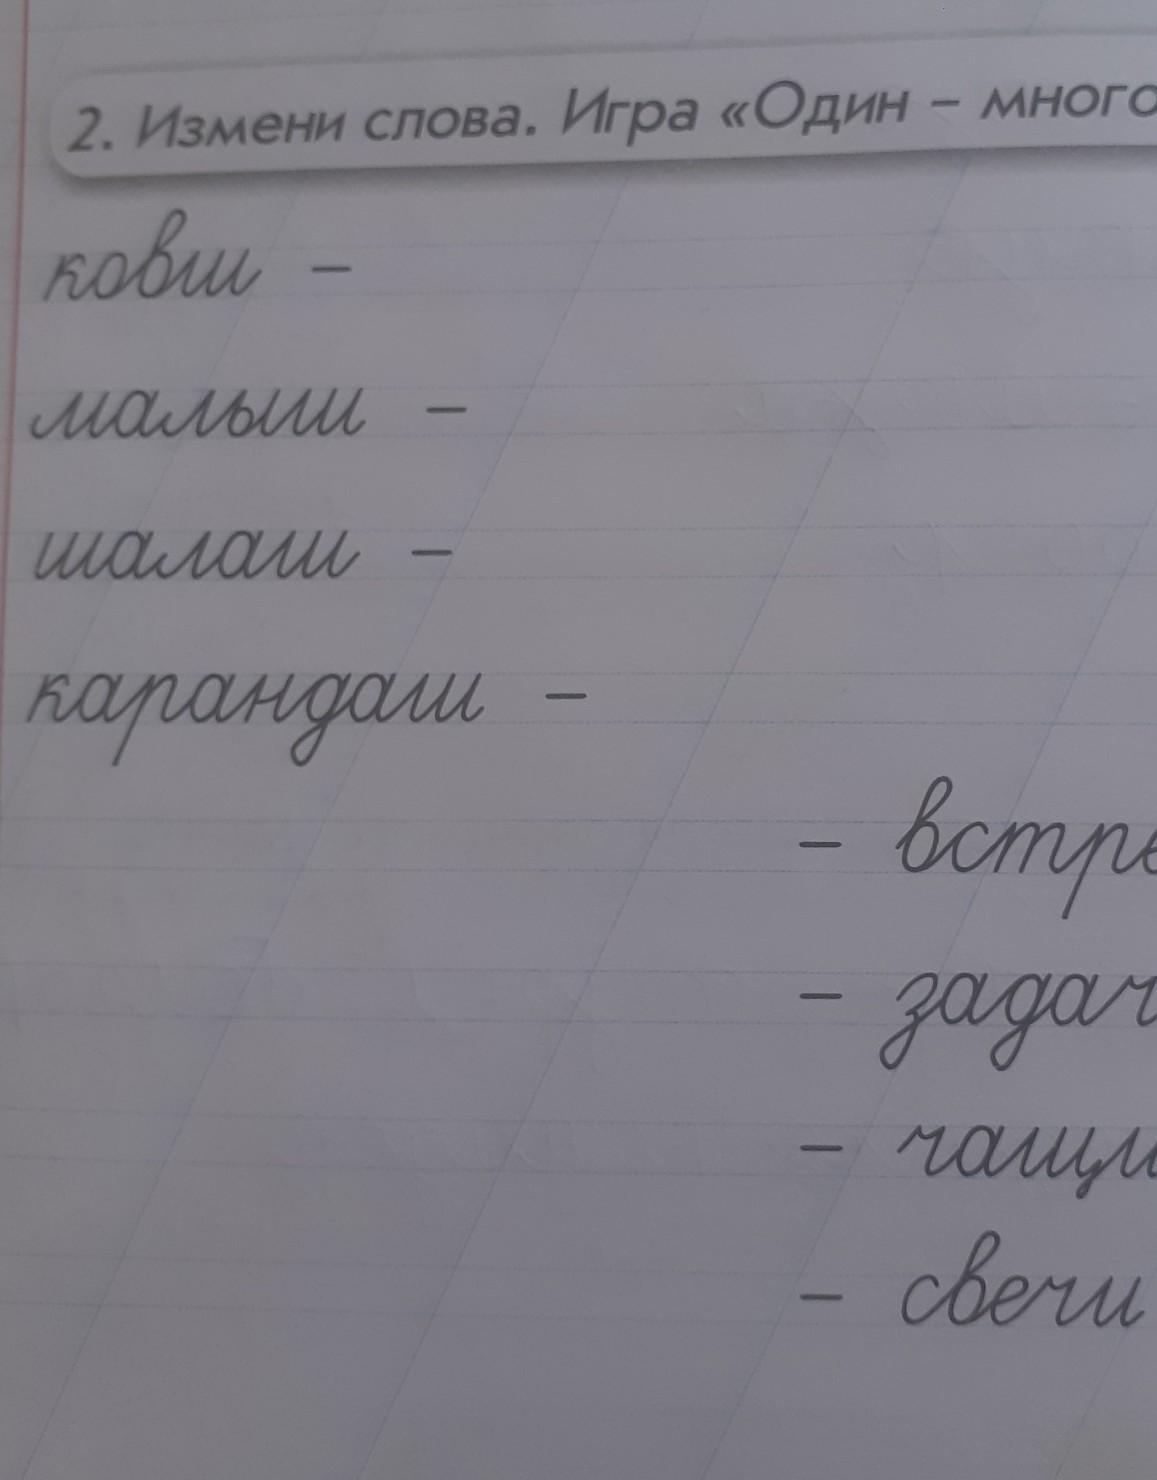 2. Измени слова. Игра «Один – много
ковш –
малыш –
шалаш –
карандаш –
– встре
– задач
– чащи
– свечи